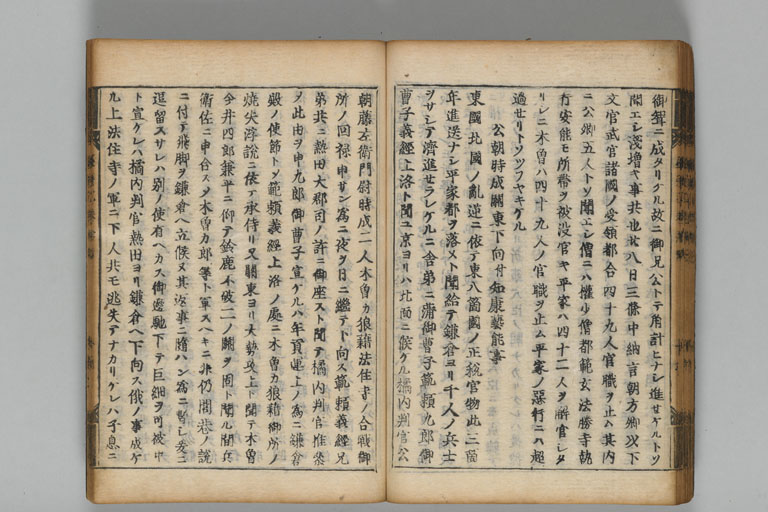 御聟ニ成タリケル故ニ御兄公トテ角計ヒナシ進セケルトソ
聞エシ浅増キ事共也廿八日三條中納言朝方卿以下
文官武官諸國ノ受領都合四十九人官職ヲ止ム其内
ニ公卿五人トソ聞エシ僧ニハ權少僧都範玄法勝寺執
行安能モ所帯ヲ被没官キ平家ハ四十二人ヲ解官シタ
リシニ木曽ハ四十九人ノ官職ヲ止ム平家ノ悪行ニハ超
過セリトソツフヤキケル
公朝時成關東下向付知康藝能事
東國北國ノ乱逆ニ依テ東八箇國ノ正税官物此三箇
年進送ナシ平家都ヲ落メト聞給テ鎌倉ヨリ千人ノ兵士
ヲサシテ濟進セラレケルニ舎弟ニ蒲御曹子範頼九郎御
曹子義經上洛ト聞ユ京ヨリハ北面ニ候ケル橘内判官公
朝藤左衛門尉時成二人木曽カ狼藉法住寺ノ合戰御
所ノ回禄申サン為ニ夜ヲ日ニ繼テト向ス範頼義經兄
弟共ニ熱田大郡司ノ許ニ御座スト聞テ橘内判官推参
ヲ此由ヲ申九郎御曹子宣ケルハ年貢運上ノ為ニ鎌倉
殿ノ使節トソ範頼義經上洛ノ處ニ木曽カ狼藉御所ノ
焼失浮説ニ依テ承侍リ又關東ヨリ大勢攻上ト聞テ木曽
今井四郎兼平ニ仰テ鈴鹿不破二ノ關ヲ固ト聞ル間兵
衛佐ニ申合スメ木曽カ郎等ト軍スヘキニ非仍閭巷ノ説
ニ付テ飛脚ヲ鎌倉ヘ立候ヌ其返事ニ随ハン為ニ暫シ爰ニ
逗留スサレハ別ノ使有ヘカラス御邊馳下テ巨細ヲ可被申
ト宣ケレハ橘内判官熱田ヨリ鎌倉ヘ下向ス俄ノ事成ケ
ル上法住寺ノ軍ニ下人共モ逃失テナカリケレハ子息ニ